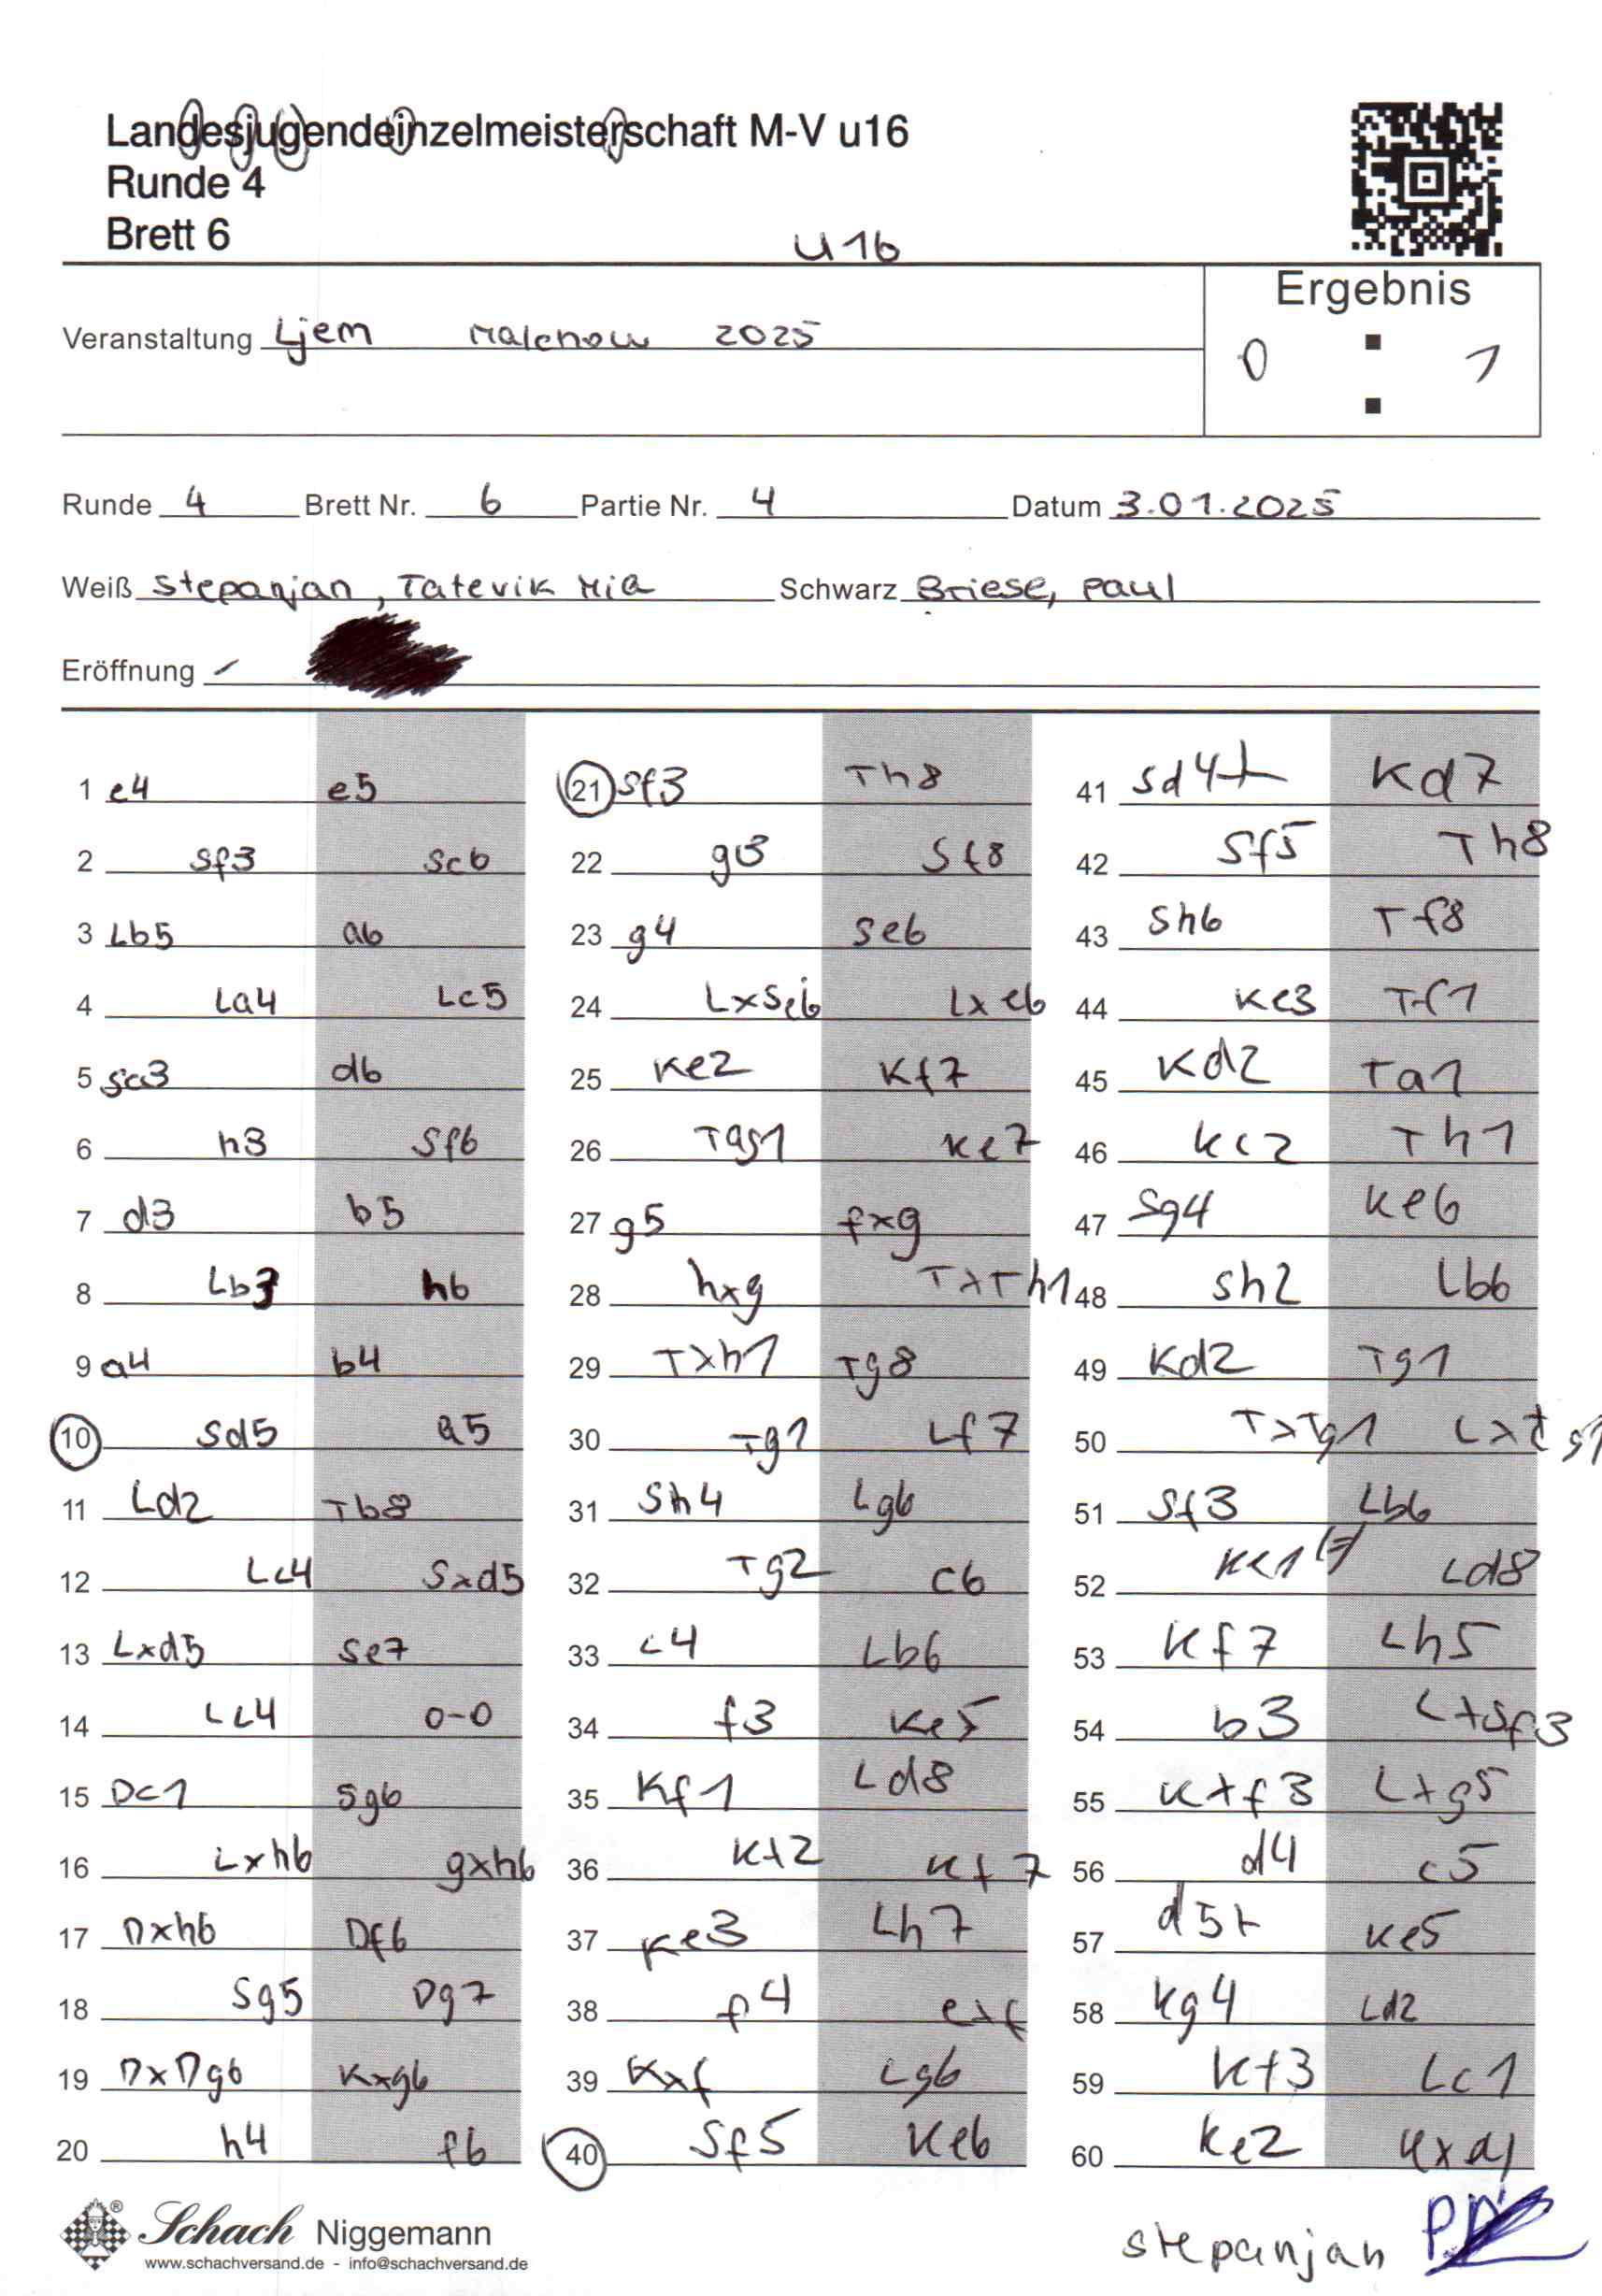 Landesjugendeinzelmeisterschaft M-V u16
Runde 4
Brett 6
u16
Ergebnis
Veranstaltung Ljem Malchow 2025
0 : 1
Runde 4 Brett Nr. 6 Partie Nr. 4 Datum 3.01.2025
Weiß Stepanjan, Tatevik Mia Schwarz Briese, Paul
Eröffnung
1 e4 e5
2 Sf3 Sc6
3 Lb5 a6
4 La4 Lc5
5 Sc3 d6
6 h3 Sf6
7 d3 b5
8 Lb3 h6
9 a4 b4
10 Sd5 a5
11 Ld2 Tb8
12 Lc4 Sxd5
13 Lxd5 Se7
14 Lc4 0-0
15 Dc1 Sg6
16 Lxh6 gxh6
17 Dxh6 Df6
18 Sg5 Dg7
19 DxDg6 Kxg6
20 h4 f6
21 Sf3 Th8
22 g3 Sf8
23 g4 Se6
24 LxSe6 Lxe6
25 Ke2 Kf7
26 Tag1 Ke7
27 g5 fxg
28 hxg TxTh1
29 Txh1 Tg8
30 Tg1 Lf7
31 Sh4 Lg6
32 Tg2 c6
33 c4 Lb6
34 f3 Ke5
35 Kf1 Ld8
36 Kf2 Kf7
37 Ke3 Lh7
38 f4 exf
39 Kxf Lg6
40 Sf5 Ke6
41 Sd4+ Kd7
42 Sf5 Th8
43 Sh6 Tf8
44 Ke3 Tf1
45 Kd2 Ta1
46 Kc2 Th1
47 Sg4 Ke6
48 Sh2 Lb6
49 Kd2 Tg1
50 TxTg1 Lxtg1
51 Sf3 Lb6
52 Ke1 (=) Ld8
53 Kf7 Lh5
54 b3 LxSf3
55 Kxf3 Lxg5
56 d4 c5
57 d5+ Ke5
58 Kg4 Ld2
59 Kf3 Lc1
60 Ke2
Schach Niggemann
www.schachversand.de - info@schachversand.de
Stepanjan